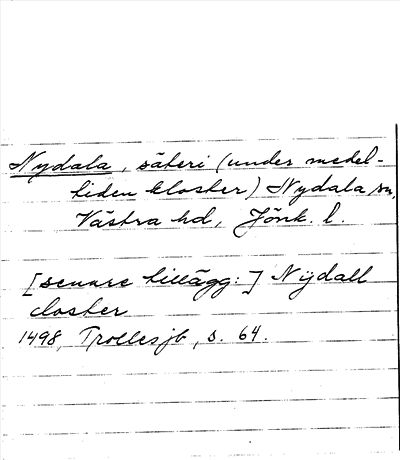 Nydala, säteri (under medel-
tiden kloster) Nydala sn,
Västra hd, Jönk. l.
[senare tillägg:] Nÿdall
closter
1498, Trollesjb, s. 64.